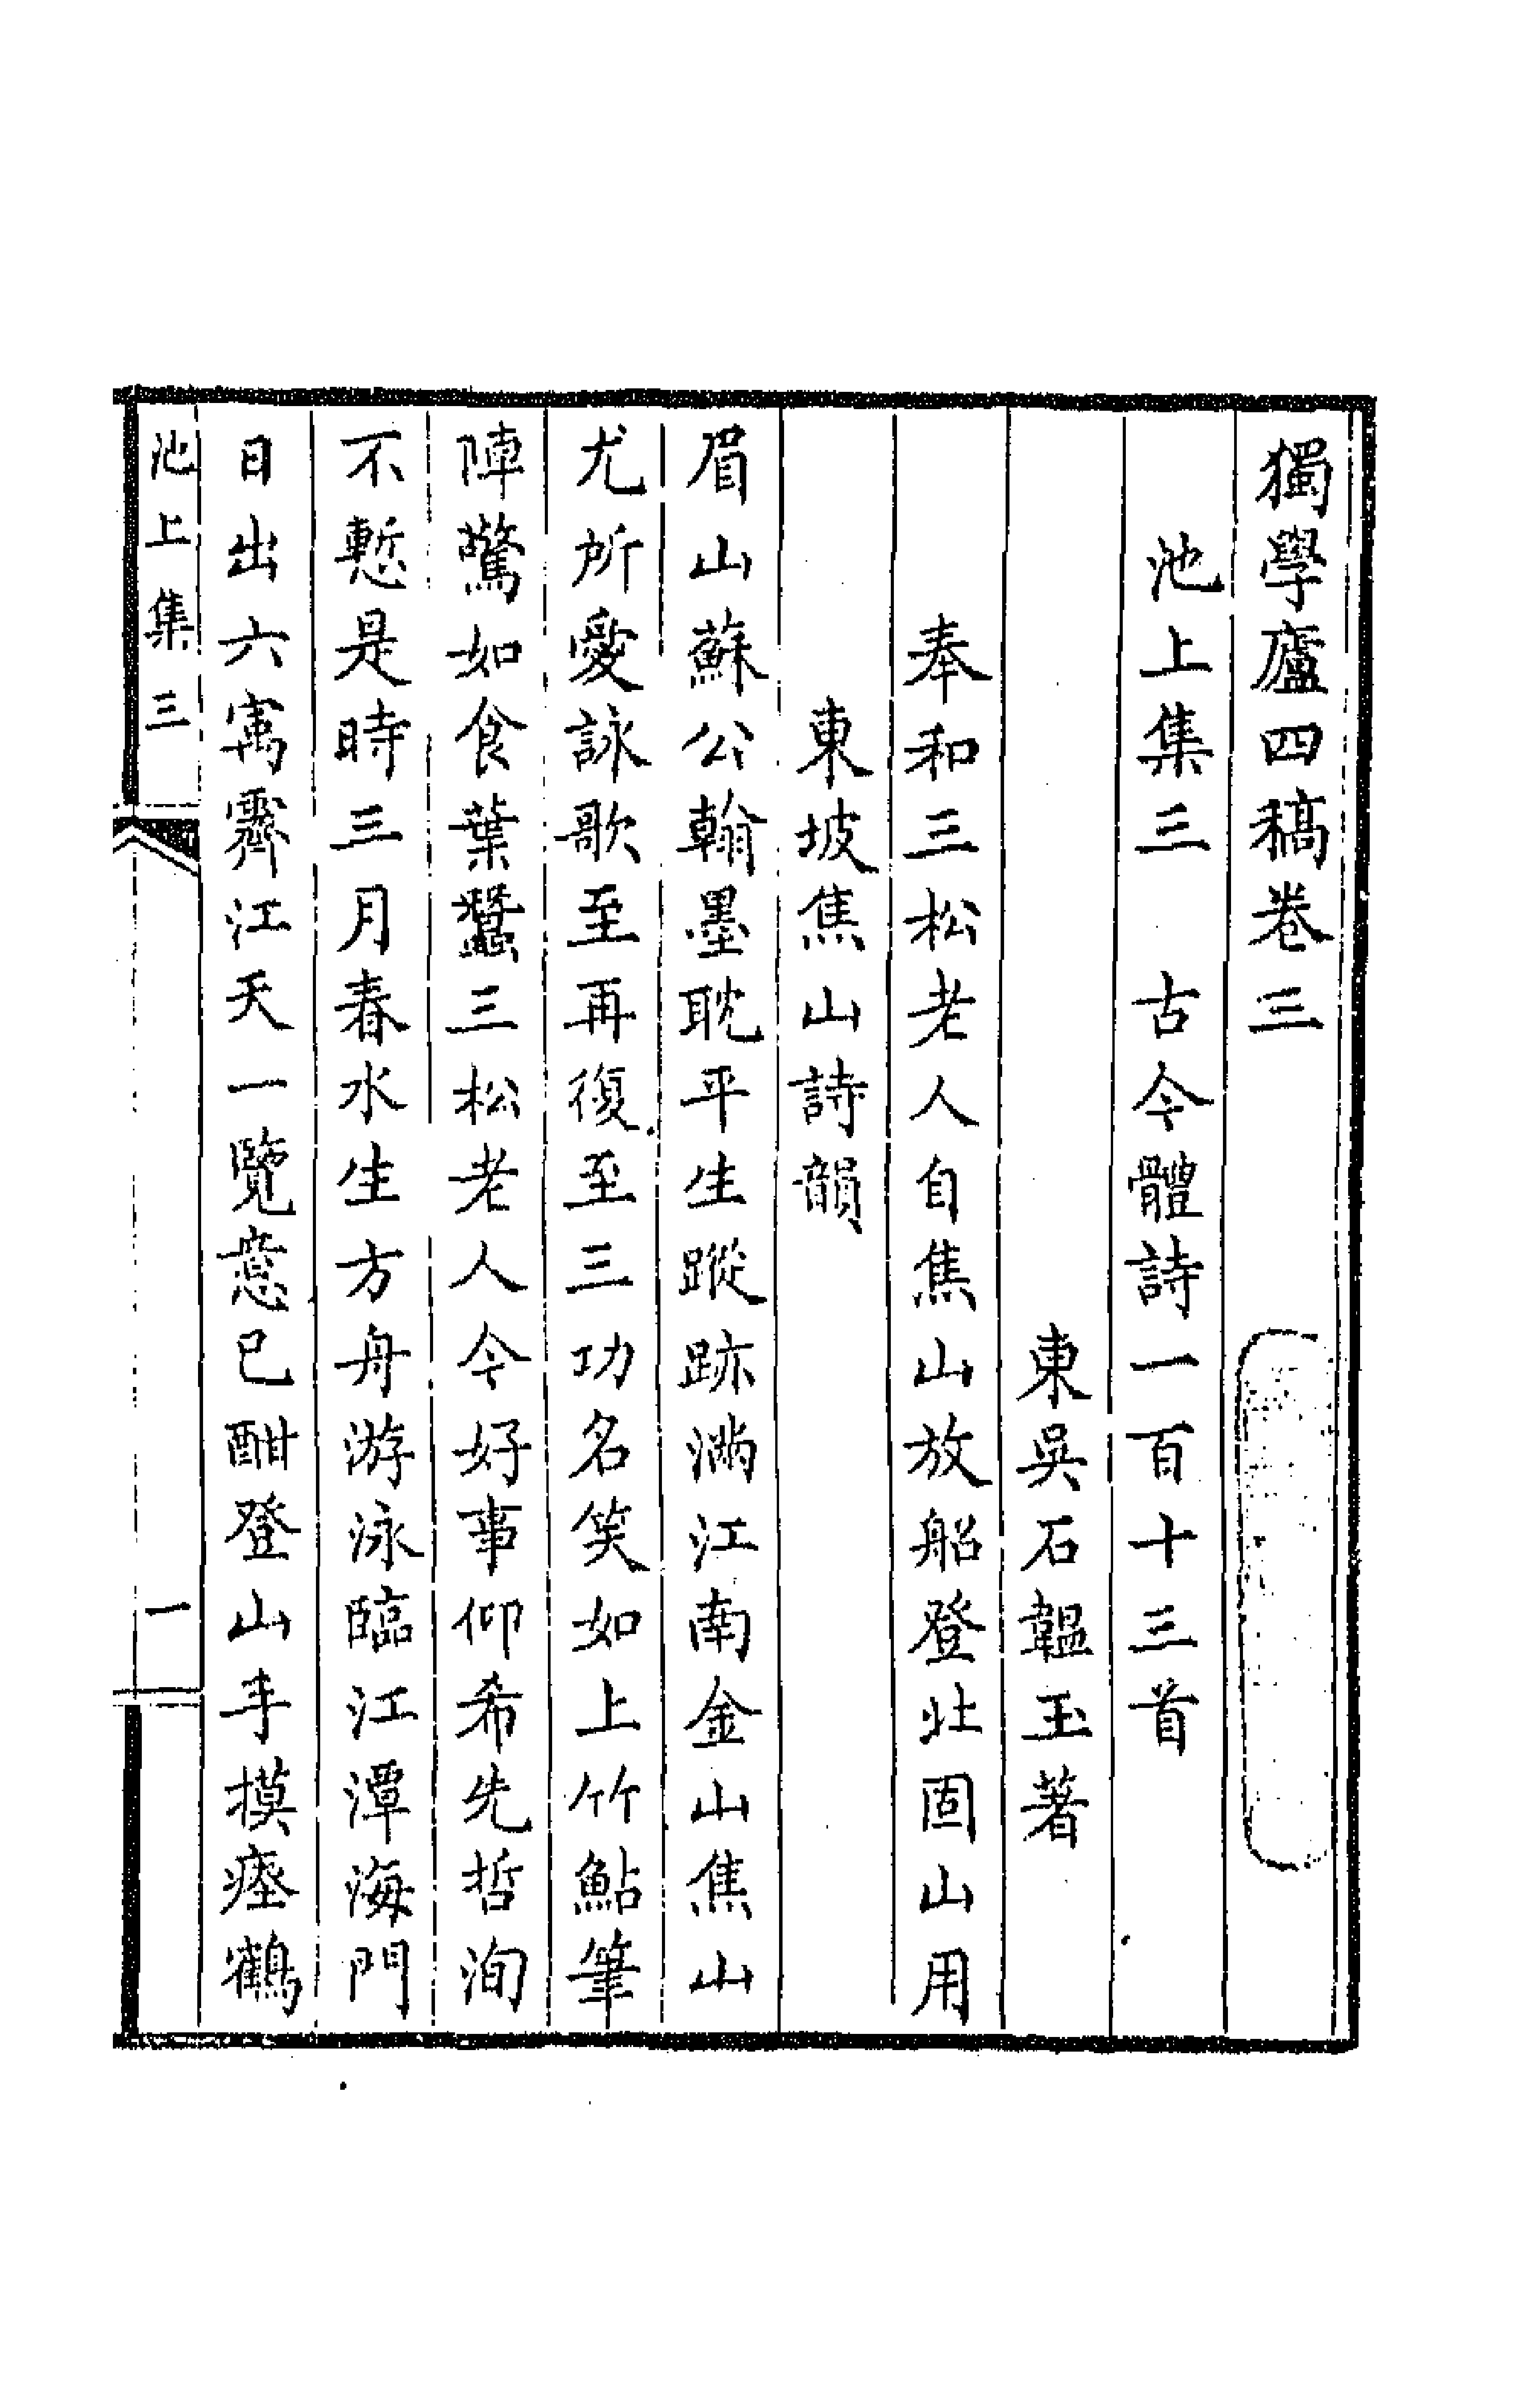 獨學廬四稿卷三
池上集三　古今體詩一百十三首
東吳石韞玉著
奉和三松老人自焦山放船登北固山用
東坡焦山詩韻
眉山蘇公翰墨耽平生蹤跡滿江南金山焦山
尤所愛詠歌至再復至三功名笑如上竹鮎筆
陣驚如食葉蠶三松老人今好事仰希先哲洵
不慙是時三月春水生方舟游泳臨江潭海門
日出六寓霽江天一覽意已酣登山手摸瘞鶴
池上集三
一